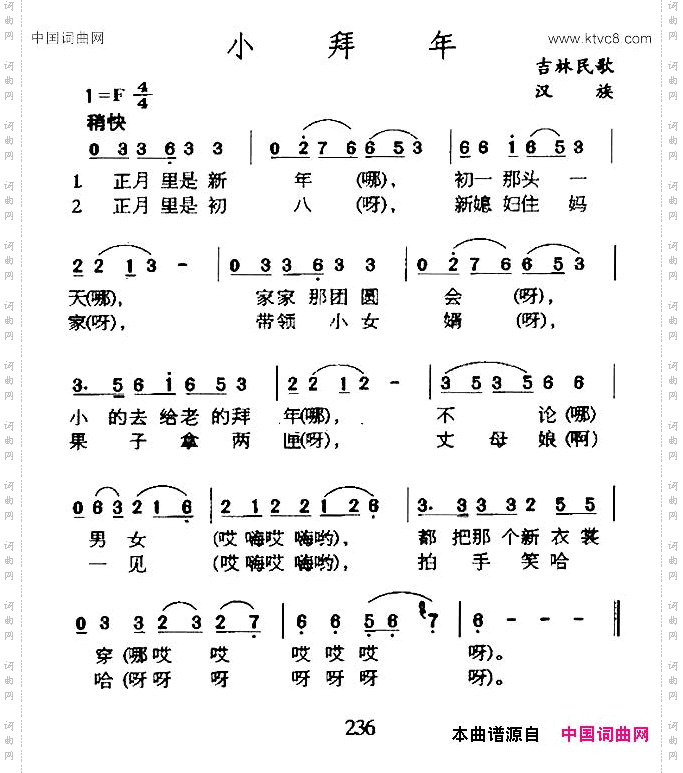 中国词曲网
www.ktvc8.com
小拜年
吉林民歌
汉族
1=F 4/4
稍快
0 3 3 6 3 3 | 0 2 7 6 6 5 3 | 6 6 i 6 5 3 |
1 正月里是新 年 (哪), 初一那头一
2 正月里是初 八 (呀), 新媳妇住妈
2 2 1 3 - | 0 3 3 6 3 3 | 0 2 7 6 6 5 3 |
天(哪), 家家那团圆 会 (呀),
家(呀), 带领小女 婿 (呀),
3. 5 6 i 6 5 3 | 2 2 1 2 - | 3 5 3 5 6 6 |
小的去给老的拜 年(哪), 不 论(哪)
果子拿两 匣(呀), 丈母娘(啊)
0 6 3 2 1 6 | 2 1 2 2 1 2 1 | 3. 3 3 3 2 5 5 |
男女 (哎嗨哎嗨哟), 都把那个新衣裳
一见 (哎嗨哎嗨哟), 拍手笑哈
0 3 3 2 3 2 7 | 6 6 5 6 7 | 6 - - -
穿(哪哎 哎 哎哎哎 呀)。
哈(呀呀 呀 呀呀呀 呀)。
236
本曲谱源自 中国词曲网
词曲网